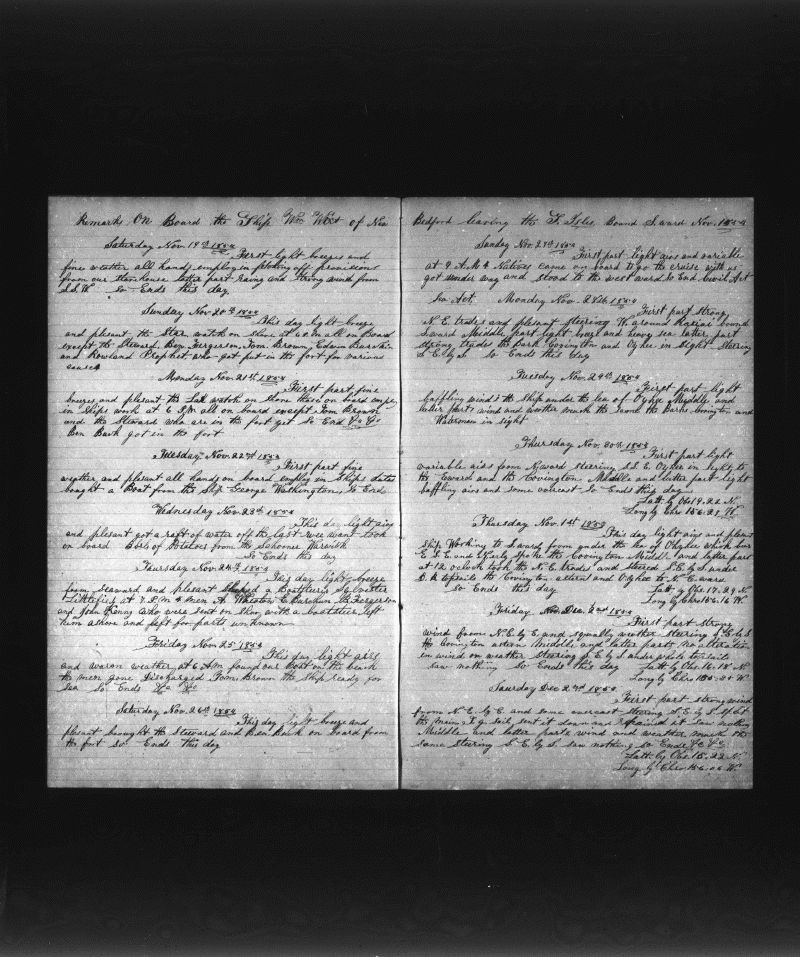 Remarks On Board the Ship Wm West of New
Saturday Nov. 19th
First light breezes and
fine weather all hands employ in getting off provisions
from our storehouse latter part Raing and Strong wind from
S.S.W. So Ends this day
Sunday Nov. 20th
This day light breeze
and plesent the Star watch on shore at 6 P.M all on Board
except the Steward, Ben Fergerson, Tom Brown, Edwin
and Rowland Prophet who got put in the fort for various
causes
Monday Nov. 21st
First part fine
breeses and plesent the Lar watch on shore those on board employ
in Ships work at 6 P.M. all on board except Tom Brown
and the Steward who are in the fort yet So End
Ben Bark got in the fort
Tuesday Nov. 22nd
First part fine
weather and plesent all hands on board employ in Ships duties
bought a Boat from the Ship George Washington So End
Wednesday Nov. 23th
This day light airs
and plesent got a raft of water off the last wee want took
on board Bbls of Potatoes from the Schooner Warwick
So Ends this day
Thursday Nov. 24th
This day light breeze
from Seaward and plesent Shiped a Boatsteerer Sylvester
at 7 P.M 4 men A. Wheaton E. B. Fergerson
and John Kenny who were sent on Shore with a boatsteerer left
him ashore and left for parts unknown
Friday Nov 25th
This day light airs
and warm weather at 6 A.m found our Boat on the beach
the men gone Discharged Tom Brown the Ship ready for
Sea So Ends
Saturday Nov. 26th
This day light breeze and
plesent brought the Steward and Ben Bark on board from
the fort So Ends this day
Bedford leaving the S. Isles Bound S.ward Nov.
Sunday Nov. 27th
First part light airs and variable
at 9 A.M 4 Natives came on board to go the cruise with us
got under way and stood to the westward So End Civil Act
Sea Act. Monday Nov. 28th
First part strong
N.E. trades and plesent steering W. around bound
S.ward Middle part light and heavy sea latter part
strong trades the bark Covington and Oyhee in Sight Steering
S. E. by S So Ends this day
Tuesday Nov. 29th
First part light
baffling winds the Ship under the lea of Oyhee Middle and
latter parts wind and weather much the same the Barks Covington and
Waverman in sight
Thursday Nov. 30th
First part light
variable airs from N.ward steering S.S.E. Oyhee in sight to
the E.ward and the Covington Middle and latter part light
baffling airs and some overcast So Ends this day
Latt by Obs 19.22 N.
Long by Chro 156.21 W.
Thursday Nov. 1st
This day light airs and plesent
Ship Working to S.ward from under the lea of Oyhee which bore
E. S. E and S.E.erly Spoke the Covington Middle and latter part
at 12 oclock took the N.E. trades and steered S.E. by S under
the Covington astern and Oyhee to N.E ward
So Ends this day Latt by Obs 17.29 N.
Long by Chro 156.16 W.
Friday Dec. 2nd
First part strong
wind from N.E. by E and squally weather Steering S. E by S
the Covington astern Middle and latter parts no alteration
in wind or weather Steering S. E by S under
saw nothing So Ends this day Latt by Obs 16.18 N.
Long by Chro W.
Saurday Dec 2nd
First part strong wind
from N.E. by E and some overcast steering S. E. by S
the Main sail sent it down and repaired it Saw nothing
Middle and latter parts wind and weather much the
same Steering S. E. by S. saw nothing so Ends
Latt by Obs 15.22 N.
Long by Chro W.